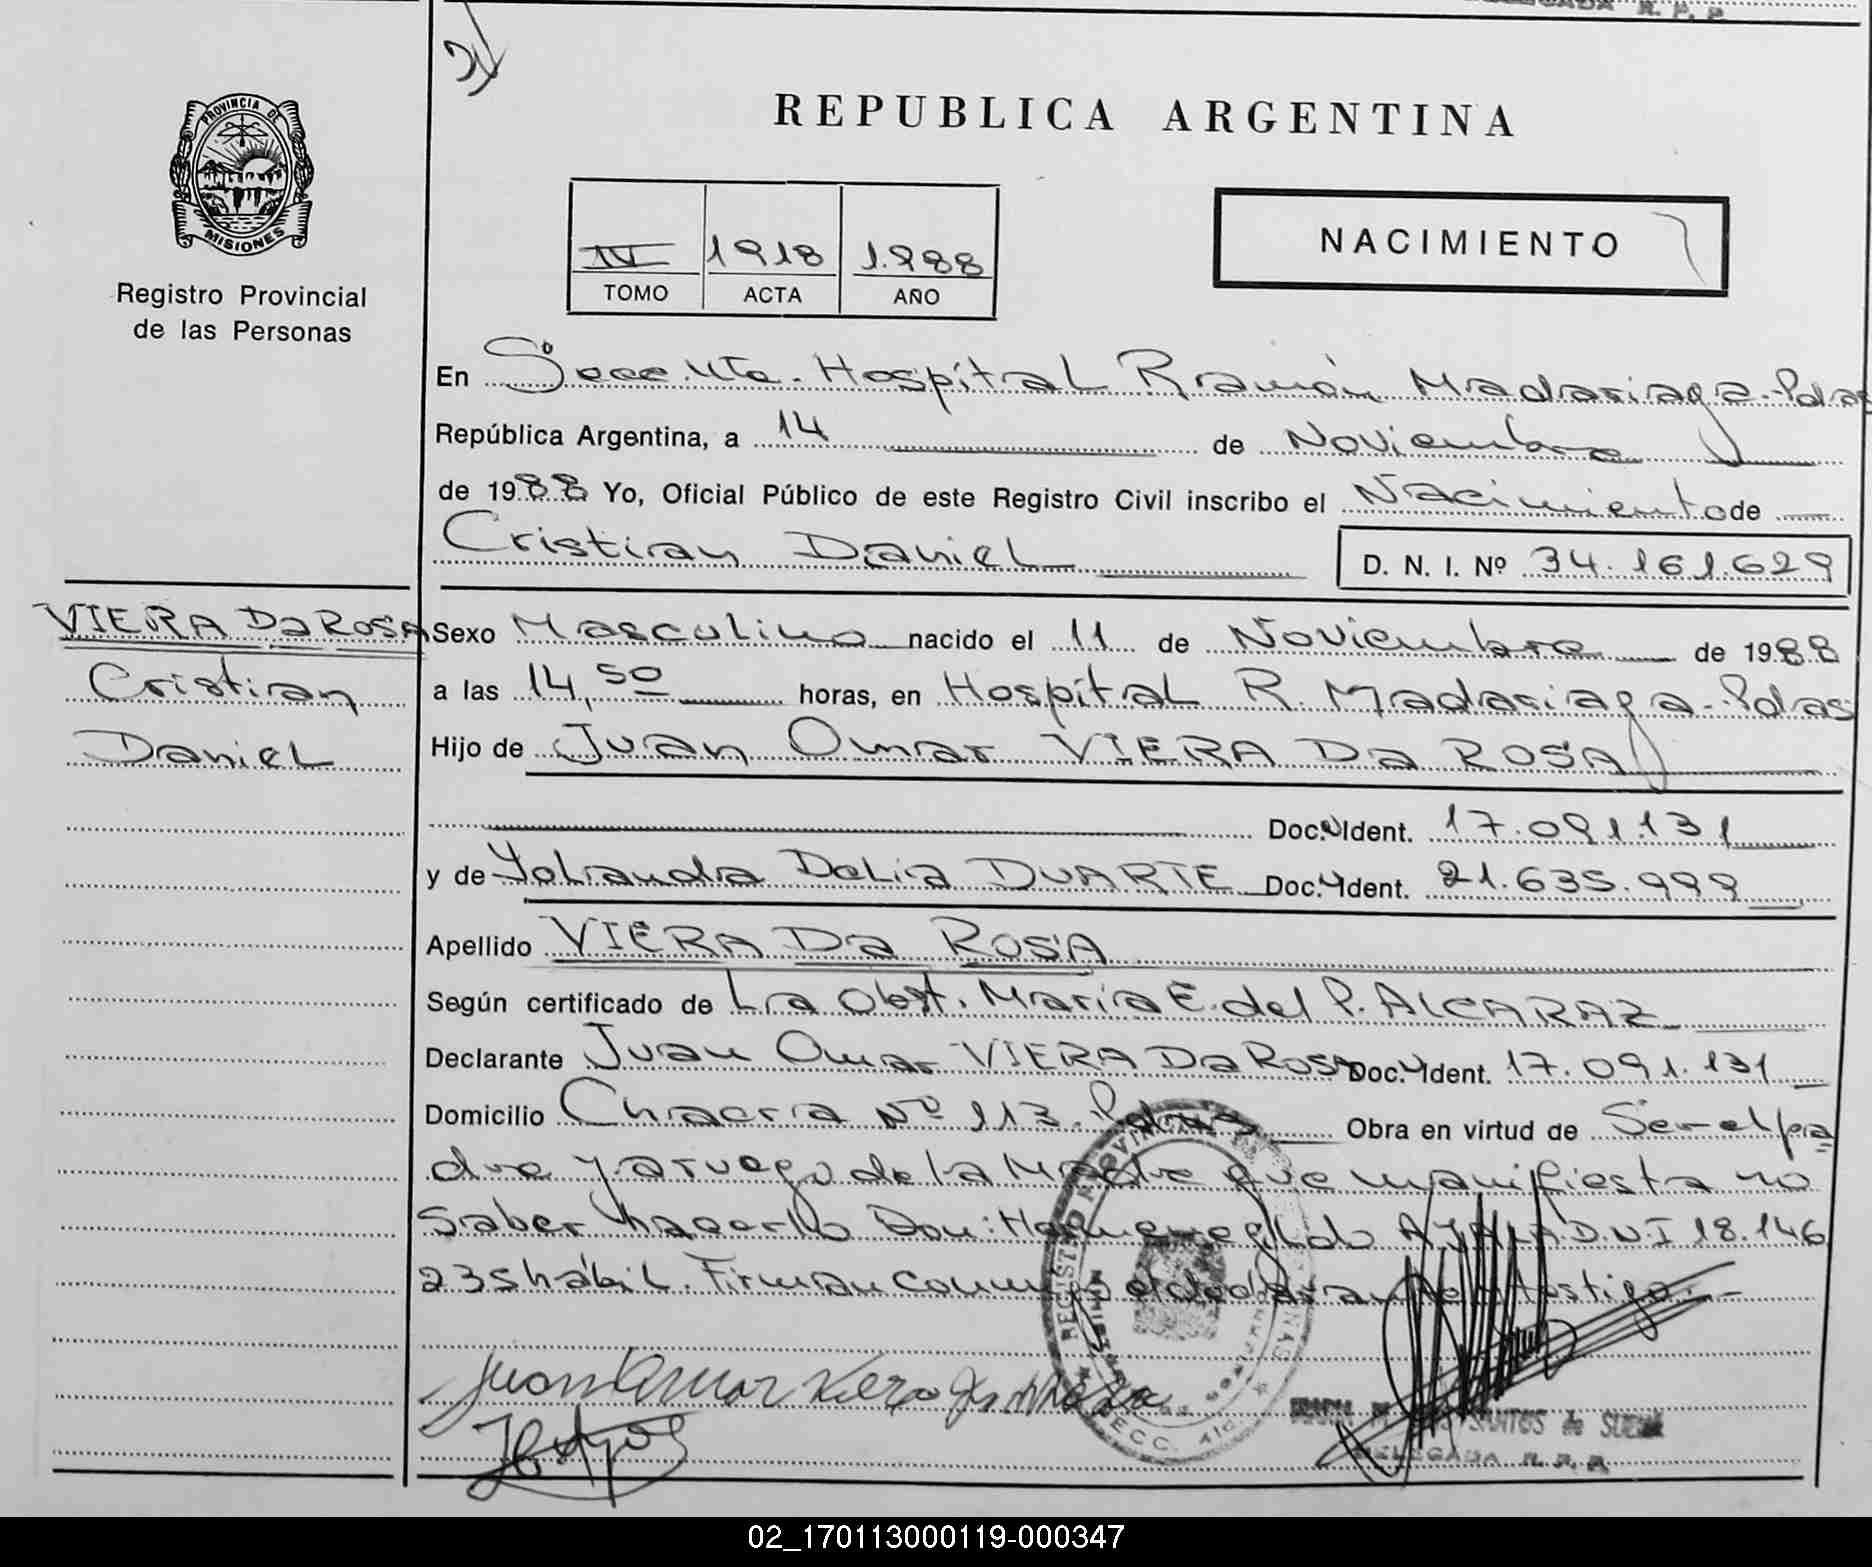 REPUBLICA ARGENTINA
PROVINCIA DE
MISIONES
Registro Provincial
de las Personas
IV 1918 1.988
TOMO ACTA AÑO
NACIMIENTO
En Secc. Hospital Ramón Madariaga-Pdas
República Argentina, a 14 de Noviembre
de 1988 Yo, Oficial Público de este Registro Civil inscribo el Nacimiento de
Cristian Daniel D. N. I. Nº 34.161.629
VIERA Da ROSA
Cristian
Daniel
Sexo Masculino nacido el 11 de Noviembre de 1988
a las 14,50 horas, en Hospital R. Madariaga-Pdas
Hijo de Juan Omar VIERA Da ROSA
Doc. Ident. 17.091.131
y de Yolanda Delia DUARTE Doc. Ident. 21.635.999
Apellido VIERA Da ROSA
Según certificado de La Obst. María E. del P. ALCARAZ
Declarante Juan Omar VIERA Da ROSA Doc. Ident. 17.091.131
Domicilio Chacra Nº 113. Pdas Obra en virtud de Ser el pa
dre y a ruego de la Madre que manifiesta no
saber hacerlo Don: Hermenegildo AYALA D.N.I 18.146
235 hábil. Firman conmigo el declarante testigo.-
SANTOS de
DELEGADA R. P. P.
02_170113000119-000347